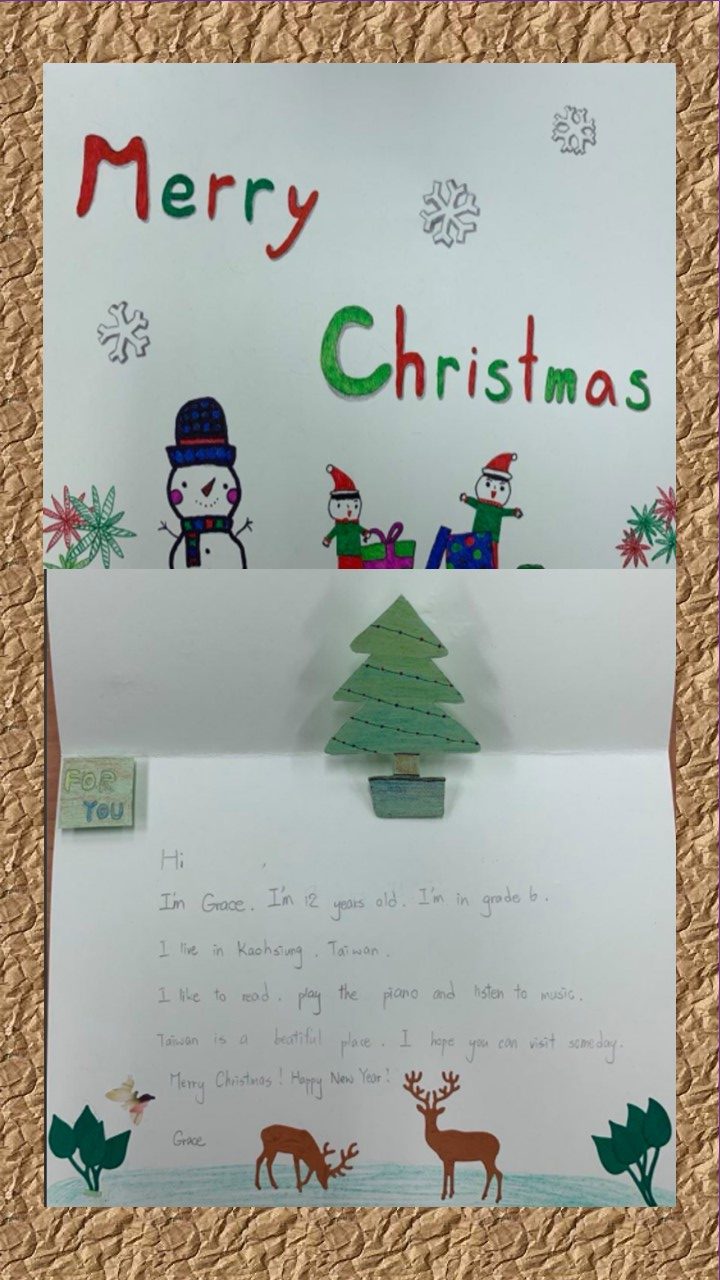 Merry
Christmas
FOR
YOU
Hi ,
I'm Grace. I'm 12 years old. I'm in grade 6.
I live in Kaohsiung, Taiwan.
I like to read, play the piano and listen to music.
Taiwan is a beatiful place. I hope you can visit someday.
Merry Christmas! Happy New Year!
Grace